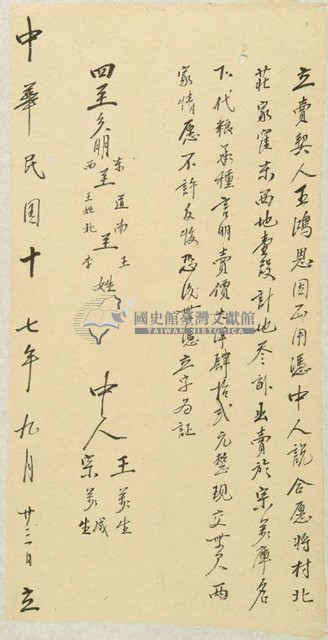 立賣契人王鴻恩因正用憑中人說合愿將村北
莊家窪東西地壹段計地叁畝出賣於宗萬庫名
下代糧承種言明賣價大洋肆拾弍元整現交無欠兩
家情愿不許反悔恐後無憑立字為証
四至分明 东至道 南至王 西至王姓 北至李姓
中人 王萬生 宗萬成 生
中華民國十七年九月廿三日立
國史館臺灣文獻館
TAIWAN HISTORICA